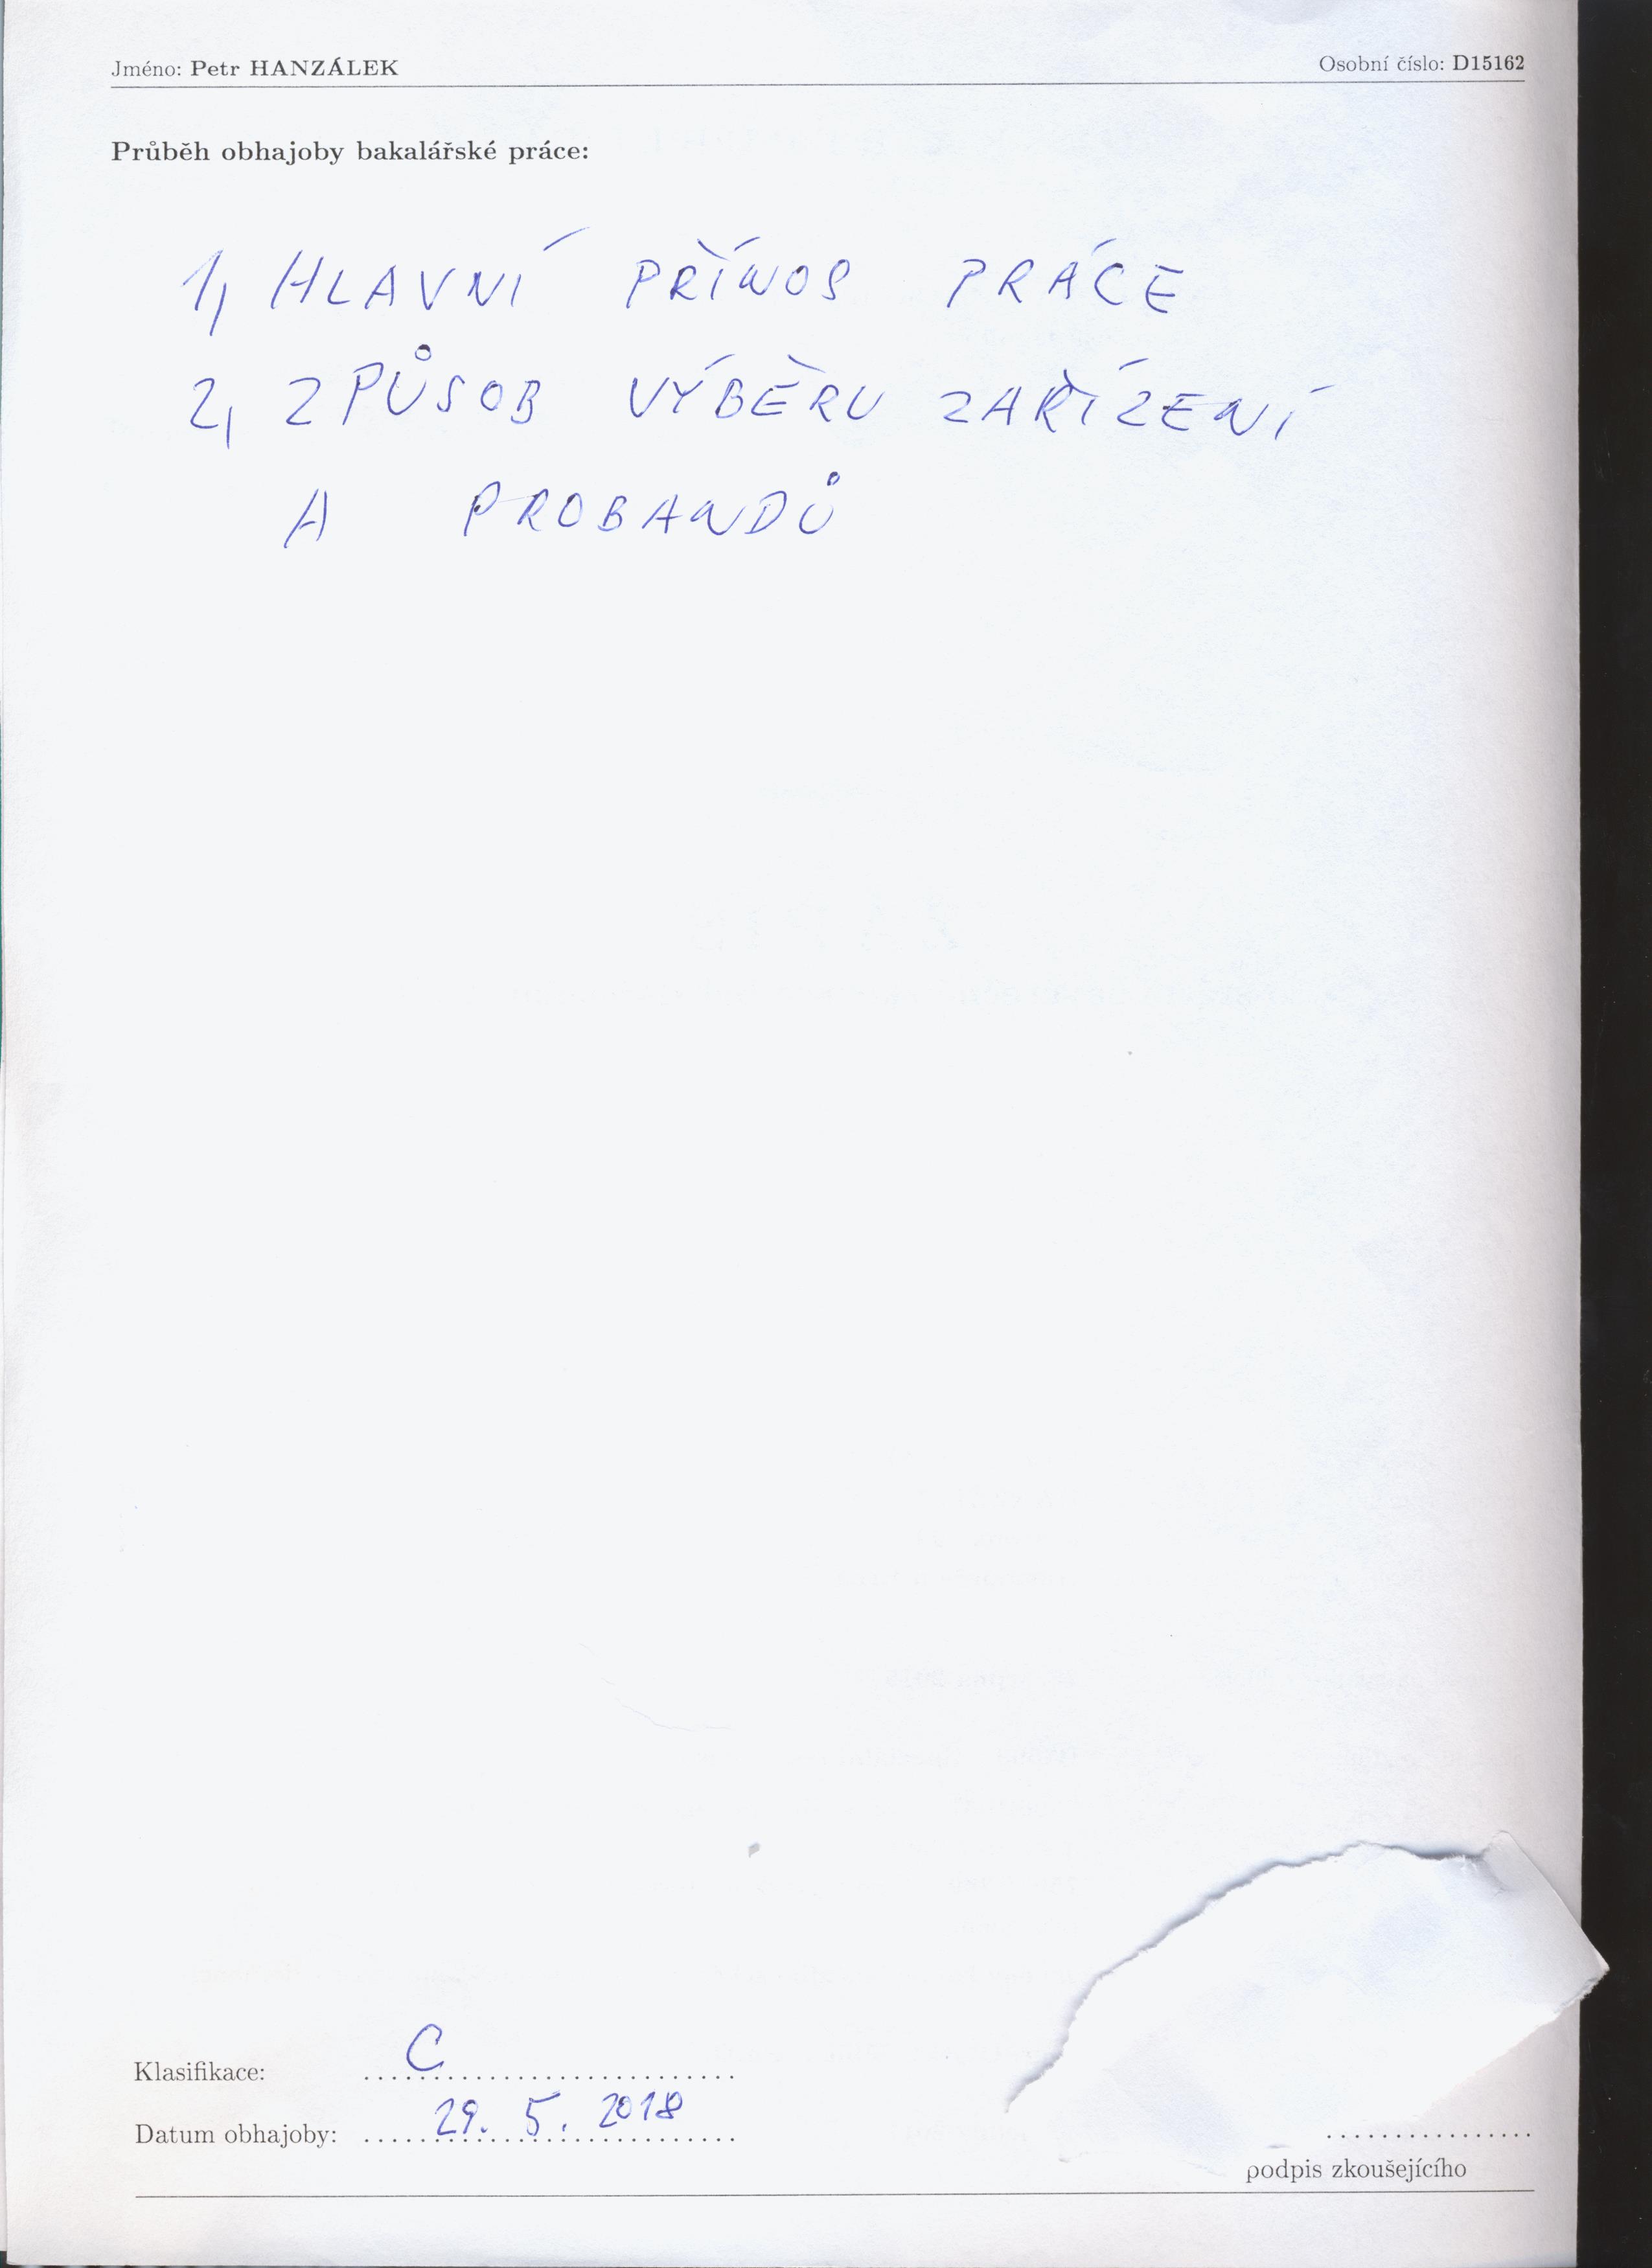 Jméno: Petr HANZÁLEK Osobní číslo: D15162
Průběh obhajoby bakalářské práce:
1, HLAVNÍ PŘÍNOS PRÁCE
2, ZPŮSOB VÝBĚRU ZAŘÍZENÍ
A PROBANDŮ
Klasifikace: C
Datum obhajoby: 29. 5. 2018
podpis zkoušejícího